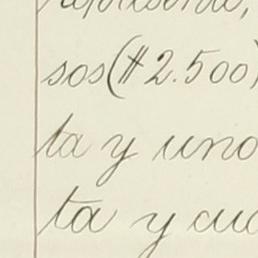 sos ($2.500)
ta y uno
ta y cua